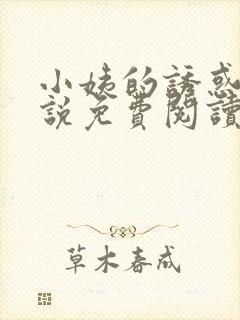 小姨的誘惑
說免費閱讀
草木春成